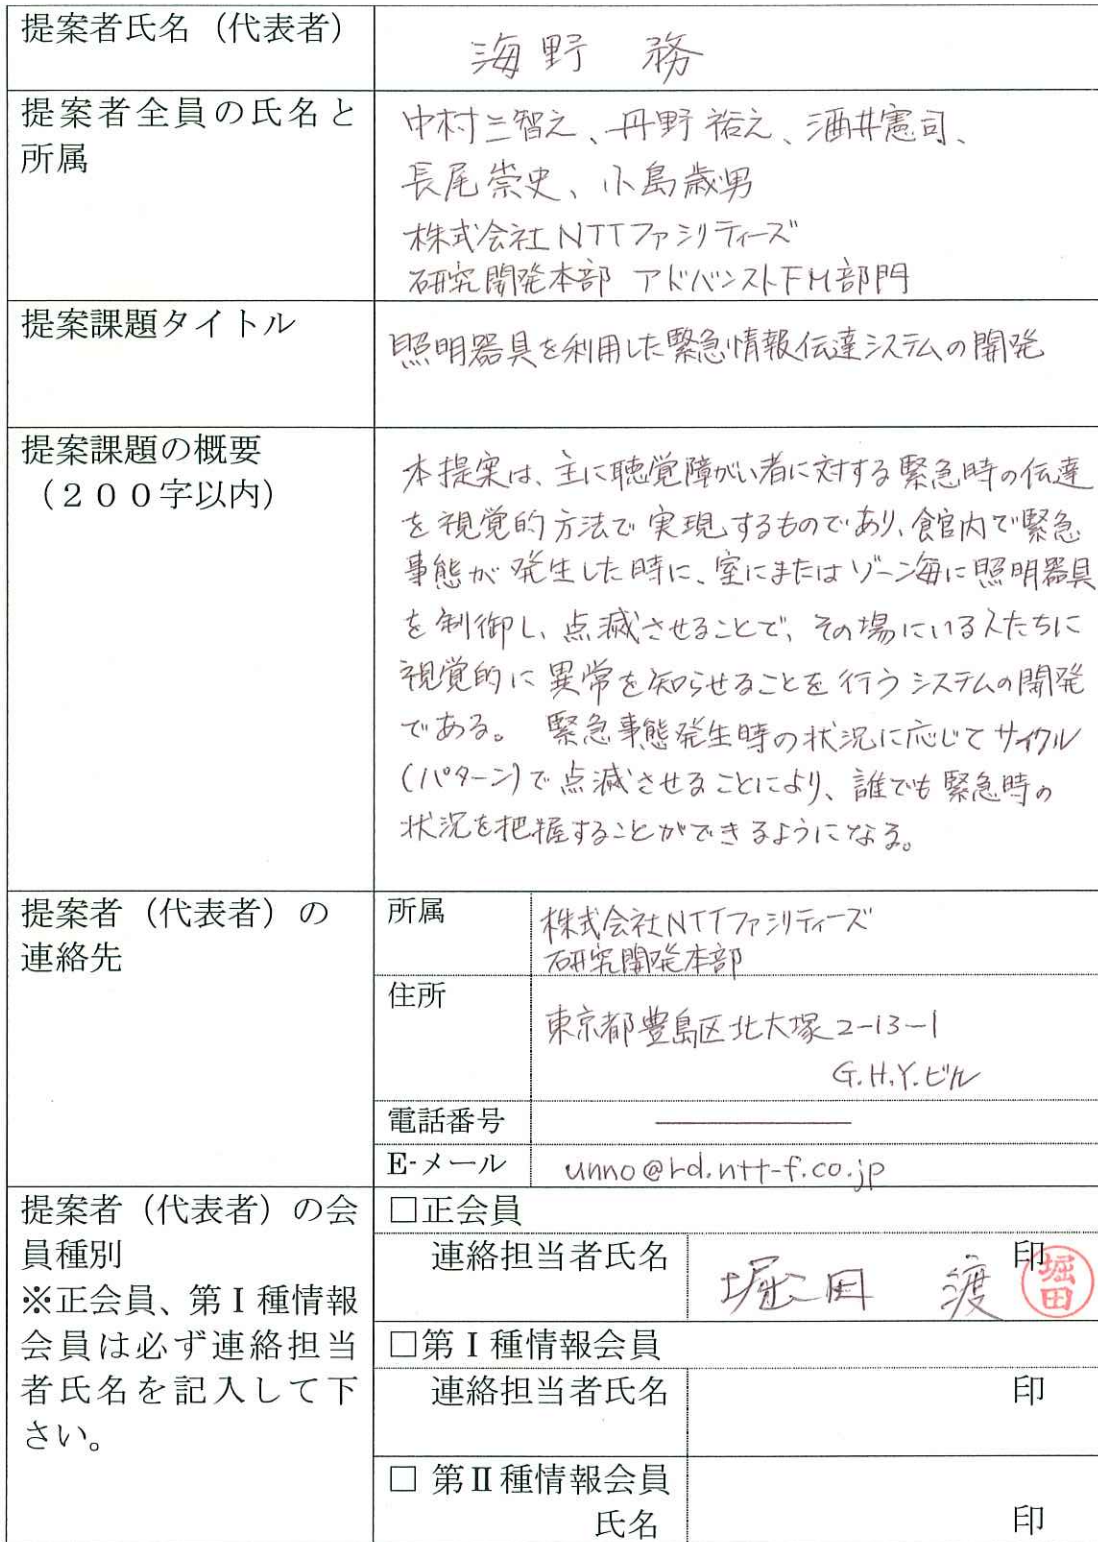 提案者氏名（代表者）
海野 務
提案者全員の氏名と
所属
中村三智之、丹野裕之、酒井憲司、
長尾崇史、小島歳男
株式会社NTTファシリティーズ
研究開発本部 アドバンストFM部門
提案課題タイトル
照明器具を利用した緊急情報伝達システムの開発
提案課題の概要
（２００字以内）
本提案は、主に聴覚障がい者に対する緊急時の伝達
を視覚的方法で実現するものであり、館内で緊急
事態が発生した時に、室にまたはゾーン毎に照明器具
を制御し、点滅させることで、その場にいる人たちに
視覚的に異常を知らせることを行うシステムの開発
である。 緊急事態発生時の状況に応じてサイクル
(パターン)で点滅させることにより、誰でも緊急時の
状況を把握することができるようになる。
提案者（代表者）の
連絡先
所属
株式会社NTTファシリティーズ
研究開発本部
住所
東京都豊島区北大塚2-13-1
G.H.Y.ビル
電話番号
E-メール
unno@rd.ntt-f.co.jp
提案者（代表者）の会
員種別
※正会員、第Ⅰ種情報
会員は必ず連絡担当
者氏名を記入して下
さい。
□正会員
連絡担当者氏名
堀田 渡
印
堀田
□第Ⅰ種情報会員
連絡担当者氏名
印
□ 第Ⅱ種情報会員
氏名
印